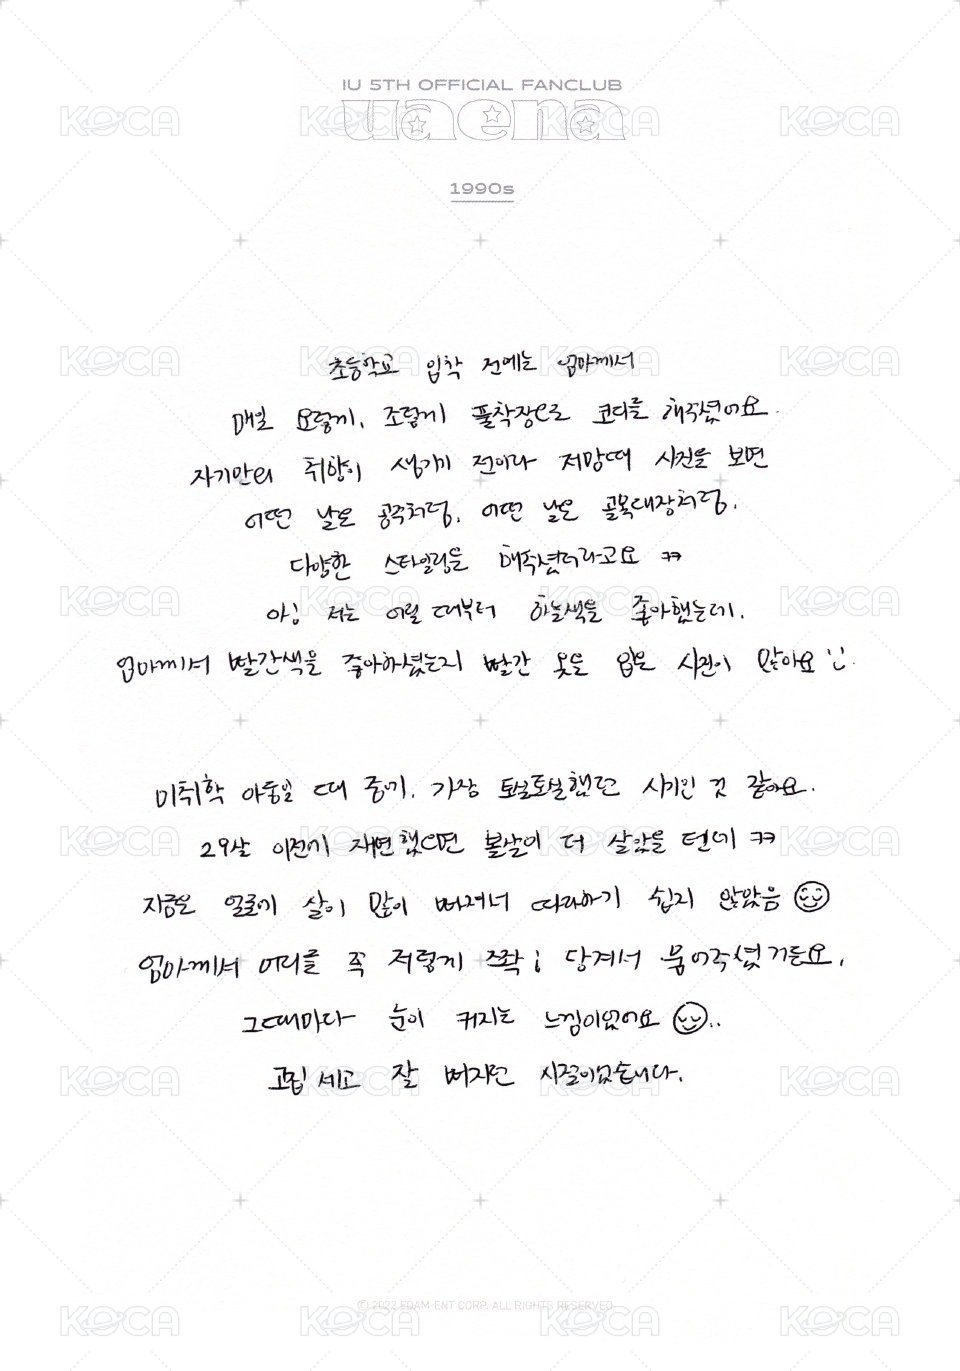 IU 5TH OFFICIAL FANCLUB
uaena
1990s
초등학교 입학 전에는 엄마께서
매일 요렇게, 조렇게 풀착장으로 코디를 해주셨어요.
자기만의 취향이 생기기 전이라 저맘때 사진을 보면
어떤 날은 공주처럼, 어떤 날은 골목대장처럼,
다양한 스타일링을 해주셨더라고요 ㅋㅋ
아! 저는 어릴 때부터 하늘색을 좋아했는데,
엄마께서 빨간색을 좋아하셨는지 빨간 옷을 입은 사진이 많아요 :).
미취학 아동일 때 중에, 가장 토실토실했던 시기인 것 같아요.
29살 이전에 재연했으면 볼살이 더 살았을 텐데 ㅋㅋ
지금은 얼굴에 살이 많이 빠져서 따라하기 쉽지 않았음
엄마께서 머리를 꼭 저렇게 쪼확! 당겨서 묶어주셨거든요,
그때마다 눈이 커지는 느낌이었어요 ..
고집 세고 잘 삐지던 시절이었습니다.
© 2022 EDAM-ENT CORP. ALL RIGHTS RESERVED
KOCA